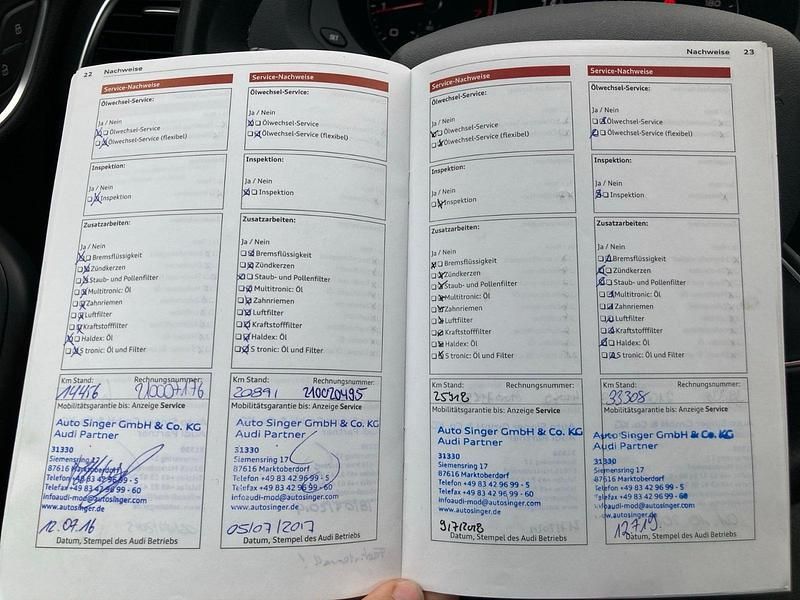 22 Nachweise
Service-Nachweise
Ölwechsel-Service:
Ja / Nein
Ölwechsel-Service
Ölwechsel-Service (flexibel)
Inspektion:
Ja / Nein
Inspektion
Zusatzarbeiten:
Ja / Nein
Bremsflüssigkeit
Zündkerzen
Staub- und Pollenfilter
Multitronic: Öl
Zahnriemen
Luftfilter
Kraftstofffilter
Haldex: Öl
S tronic: Öl und Filter
Km Stand: Rechnungsnummer:
14416
Mobilitätsgarantie bis: Anzeige Service
Auto Singer GmbH & Co. KG
Audi Partner
31330
Siemensring 17
87616 Marktoberdorf
Telefon +49 83 42 96 99 - 5
Telefax +49 83 42 96 99 - 60
infoaudi-mod@autosinger.com
www.autosinger.de
12.07.16
Datum, Stempel des Audi Betriebs
Service-Nachweise
Ölwechsel-Service:
Ja / Nein
Ölwechsel-Service
Ölwechsel-Service (flexibel)
Inspektion:
Ja / Nein
Inspektion
Zusatzarbeiten:
Ja / Nein
Bremsflüssigkeit
Zündkerzen
Staub- und Pollenfilter
Multitronic: Öl
Zahnriemen
Luftfilter
Kraftstofffilter
Haldex: Öl
S tronic: Öl und Filter
Km Stand: Rechnungsnummer:
20891 210020495
Mobilitätsgarantie bis: Anzeige Service
Auto Singer GmbH & Co. KG
Audi Partner
31330
Siemensring 17
87616 Marktoberdorf
Telefon +49 83 42 96 99 - 5
Telefax +49 83 42 96 99 - 60
infoaudi-mod@autosinger.com
www.autosinger.de
05/07/2017
Datum, Stempel des Audi Betriebs
Nachweise 23
Service-Nachweise
Ölwechsel-Service:
Ja / Nein
Ölwechsel-Service
Ölwechsel-Service (flexibel)
Inspektion:
Ja / Nein
Inspektion
Zusatzarbeiten:
Ja / Nein
Bremsflüssigkeit
Zündkerzen
Staub- und Pollenfilter
Multitronic: Öl
Zahnriemen
Luftfilter
Kraftstofffilter
Haldex: Öl
S tronic: Öl und Filter
Km Stand: Rechnungsnummer:
25918
Mobilitätsgarantie bis: Anzeige Service
Auto Singer GmbH & Co. KG
Audi Partner
31330
Siemensring 17
87616 Marktoberdorf
Telefon +49 83 42 96 99 - 5
Telefax +49 83 42 96 99 - 60
infoaudi-mod@autosinger.com
www.autosinger.de
9/7/2018
Datum, Stempel des Audi Betriebs
Service-Nachweise
Ölwechsel-Service:
Ja / Nein
Ölwechsel-Service
Ölwechsel-Service (flexibel)
Inspektion:
Ja / Nein
Inspektion
Zusatzarbeiten:
Ja / Nein
Bremsflüssigkeit
Zündkerzen
Staub- und Pollenfilter
Multitronic: Öl
Zahnriemen
Luftfilter
Kraftstofffilter
Haldex: Öl
S tronic: Öl und Filter
Km Stand: Rechnungsnummer:
33308
Mobilitätsgarantie bis: Anzeige Service
Auto Singer GmbH & Co. KG
Audi Partner
31330
Siemensring 17
87616 Marktoberdorf
Telefon +49 83 42 96 99 - 5
Telefax +49 83 42 96 99 - 60
infoaudi-mod@autosinger.com
www.autosinger.de
Datum, Stempel des Audi Betriebs